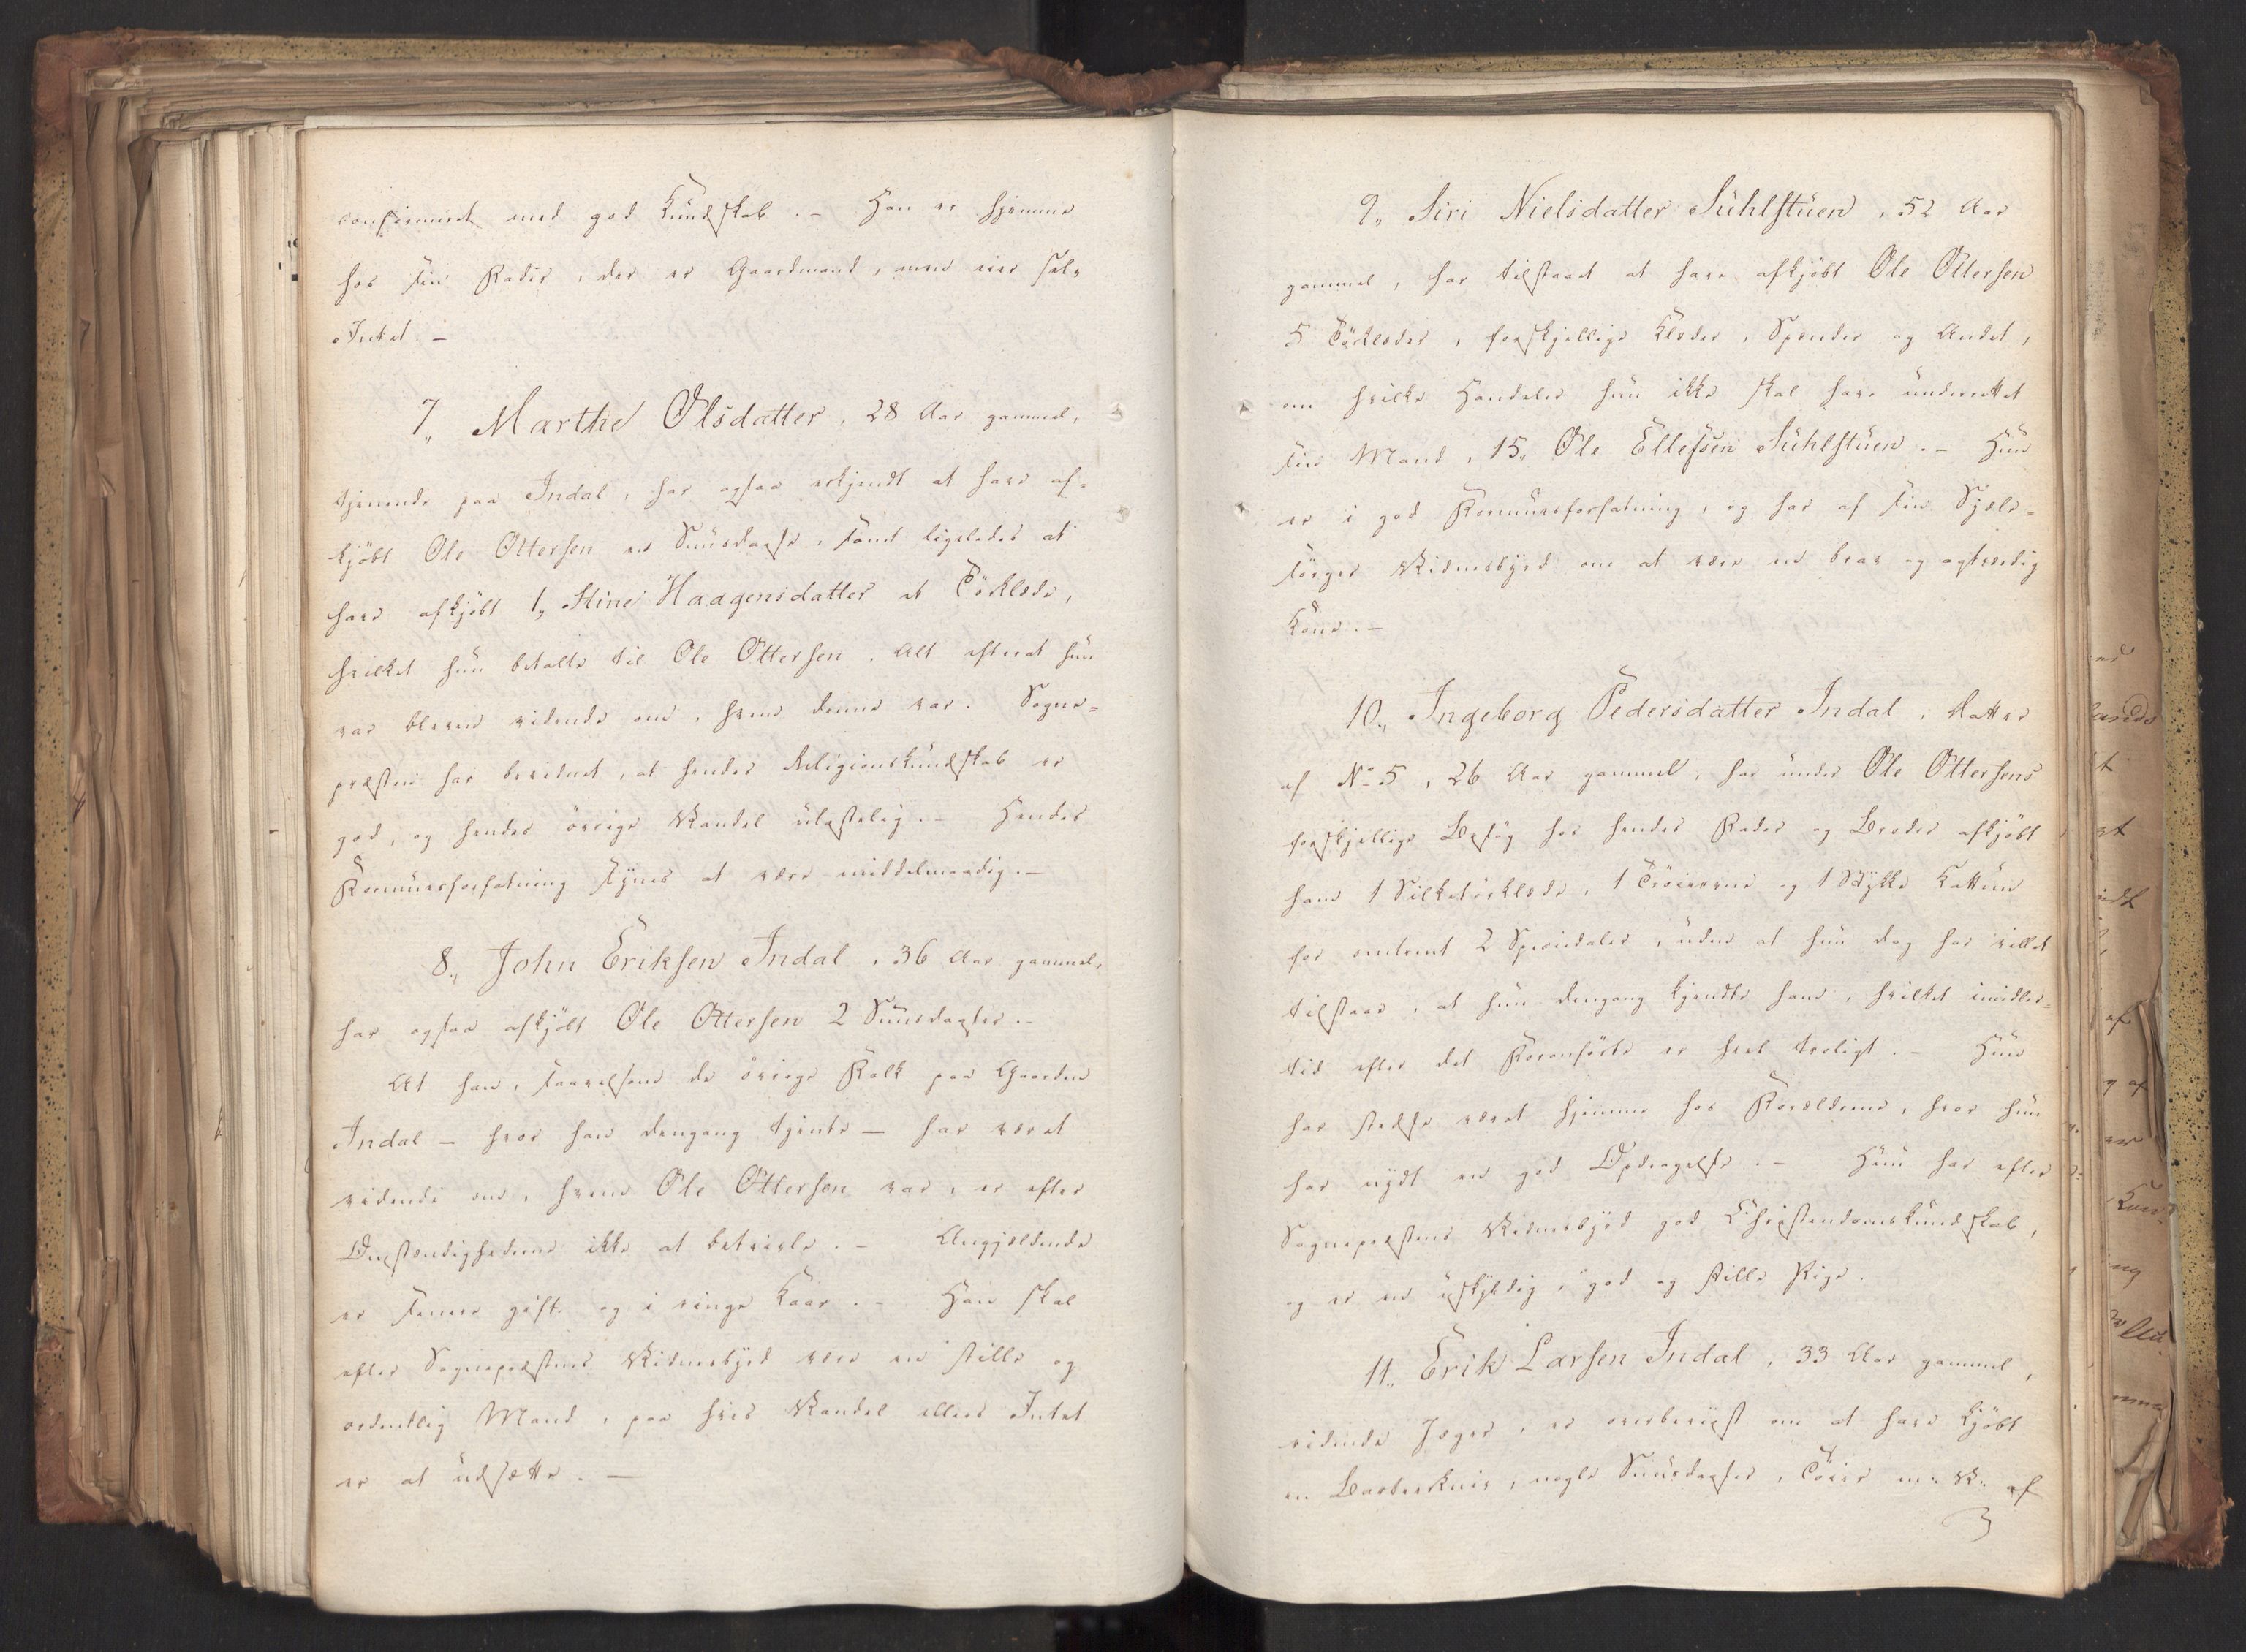 confirmeret med god Kundskab. – Han er hjemme
hos sin Fader, der er Gaardmand, men eier selv
Intet. –
7, Marthe Olsdatter, 28 Aar gammel,
tjenende paa Indal, har ogsaa erkjendt at have af-
kjøbt Ole Ottersen en Snusdaase, samt ligeledes at
have afkjøbt 1, Stine Haagensdatter et Tørklæde,
hvilket hun betalte til Ole Ottersen, Alt efterat hun
var bleven vidende om, hvem denne var. Sogne-
præsten har bevidnet, at hendes Religionskundskab er
god, og hendes øvrige Vandel ulastelig. – Hendes
Formuesforfatning synes at være middelmaadig. –
8, John Eriksen Indal, 36 Aar gammel,
har ogsaa afkjøbt Ole Ottersen 2 Snusdaaser. –
At han, saavelsom de øvrige Folk paa Gaarden
Indal – hvor han dengang tjente – har været
vidende om, hvem Ole Ottersen var, er efter
Omstændighederne ikke at betvivle. – Angjældende
er senere gift og i ringe Kaar. – Han skal
efter Sognepræstens Vidnesbyrd være en stille og
ordentlig Mand, paa hvis Vandel ellers Intet
er at udsætte. –
9, Siri Nielsdatter Suhlstuen, 52 Aar
gammel, har tilstaaet at have afkjøbt Ole Ottersen
5 Tørklæder, forskjellige Klæder, Spænder og Andet,
om hvilke Handeler hun ikke skal have underrettet
sin Mand, 15, Ole Ellefsen Suhlstuen. – Hun
er i god Formuesforfatning, og har af sin Sjæle-
sørger Vidnesbyrd om at være en brav og agtværdig
Kone. –
10, Ingeborg Pedersdatter Indal, Datter
af No 5, 26 Aar gammel, har under Ole Ottersens
forskjellige Besøg hos hendes Fader og Broder afkjøbt
ham 1 Silketørklæde, 1 Trøieærme og 1 Stykke Kattun
for omtrent 2 Speciedaler, uden at hun dog har villet
tilstaae, at hun dengang kjendte ham, hvilket imidler-
tid efter det Foranførte er høist troligt. – Hun
har stedse været hjemme hos Forældrene, hvor hun
har nydt en god Opdragelse. – Hun har efter
Sognepræstens Vidnesbyrd god Christendomskundskab,
og er en uskyldig, god og stille Pige.
11, Erik Larsen Indal, 33 Aar gammel,
ridende Jæger, er overbeviist om at have kjøbt
en Barberkniv, nogle Snusdaaser, Tøier m: V: af